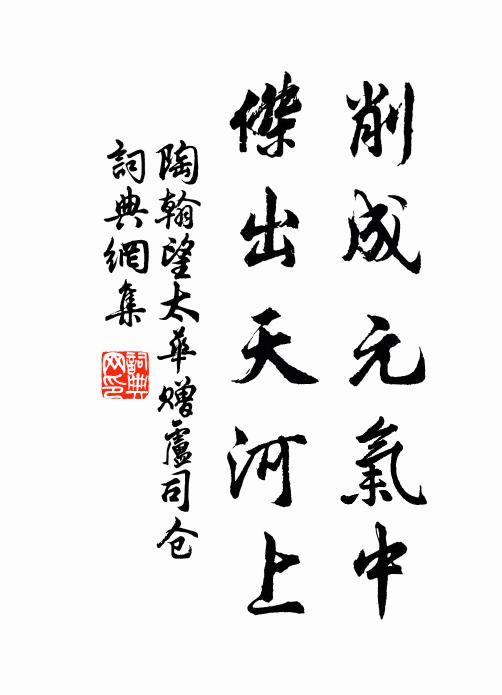 削成元氣中
傑出天河上
陶翰望太華贈盧司仓
詞典網集
詞典網印